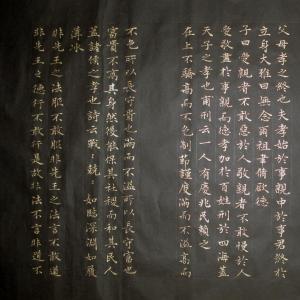 父母孝之終也夫孝始於事親中於事君終於
立身大雅曰無念爾祖聿脩厥德
子曰愛親者不敢惡於人敬親者不敢慢於人
愛敬盡於事親而德教加於百姓刑於四海蓋
天子之孝也甫刑云一人有慶兆民賴之
在上不驕高而不危制節謹度滿而不溢高而
不危所以長守貴也滿而不溢所以長守富也
富貴不離其身然後能保其社稷而和其民人
蓋諸侯之孝也詩云戰〻兢〻如臨深淵如履
薄冰
非先王之法服不敢服非先王之法言不敢道
非先王之德行不敢行是故非法不言非道不